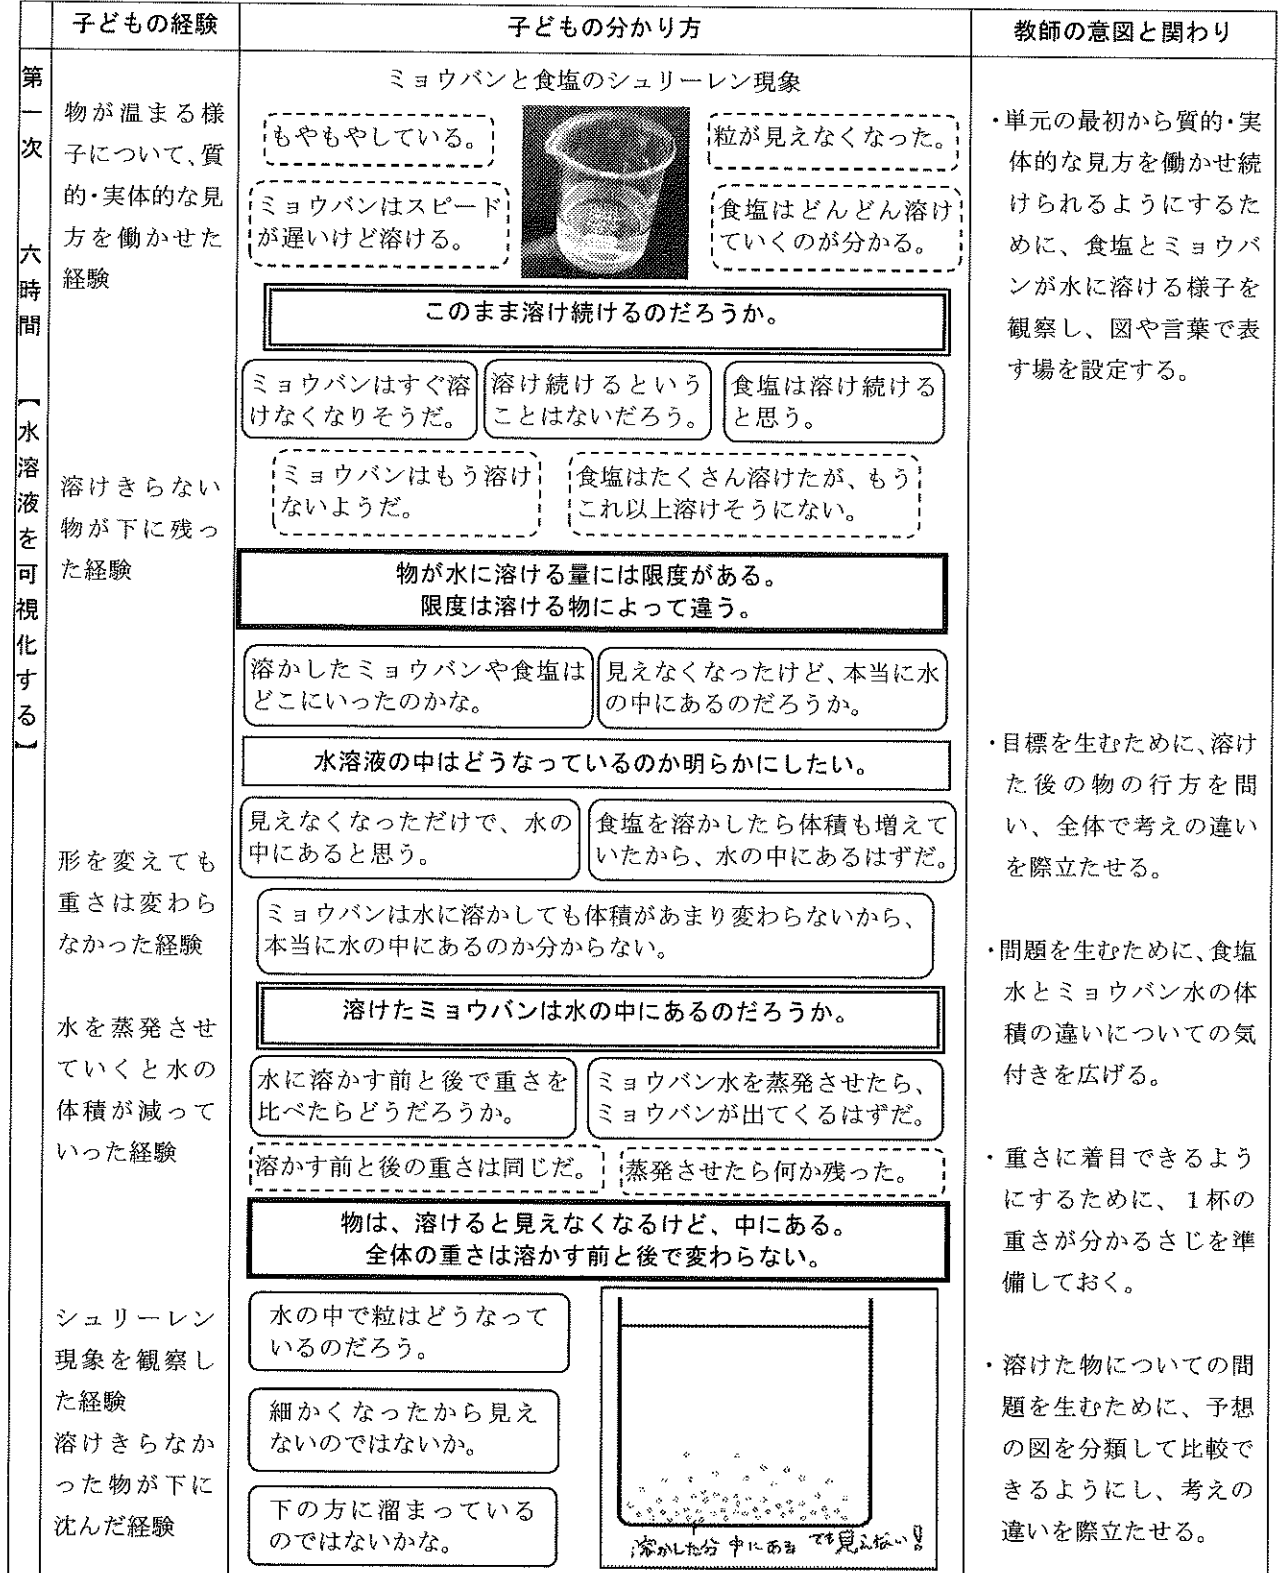 子どもの経験
子どもの分かり方
教師の意図と関わり
第一次 六時間 【水溶液を可視化する】
物が温まる様
子について、質
的・実体的な見
方を働かせた
経験
溶けきらない
物が下に残っ
た経験
形を変えても
重さは変わら
なかった経験
水を蒸発させ
ていくと水の
体積が減って
いった経験
シュリーレン
現象を観察し
た経験
溶けきらなか
った物が下に
沈んだ経験
ミョウバンと食塩のシュリーレン現象
もやもやしている。
粒が見えなくなった。
ミョウバンはスピード
が遅いけど溶ける。
食塩はどんどん溶け
ていくのが分かる。
このまま溶け続けるのだろうか。
ミョウバンはすぐ溶
けなくなりそうだ。
溶け続けるという
ことはないだろう。
食塩は溶け続ける
と思う。
ミョウバンはもう溶け
ないようだ。
食塩はたくさん溶けたが、もう
これ以上溶けそうにない。
物が水に溶ける量には限度がある。
限度は溶ける物によって違う。
溶かしたミョウバンや食塩は
どこにいったのかな。
見えなくなったけど、本当に水
の中にあるのだろうか。
水溶液の中はどうなっているのか明らかにしたい。
見えなくなっただけで、水の
中にあると思う。
食塩を溶かしたら体積も増えて
いたから、水の中にあるはずだ。
ミョウバンは水に溶かしても体積があまり変わらないから、
本当に水の中にあるのか分からない。
溶けたミョウバンは水の中にあるのだろうか。
水に溶かす前と後で重さを
比べたらどうだろうか。
ミョウバン水を蒸発させたら、
ミョウバンが出てくるはずだ。
溶かす前と後の重さは同じだ。
蒸発させたら何か残った。
物は、溶けると見えなくなるけど、中にある。
全体の重さは溶かす前と後で変わらない。
水の中で粒はどうなって
いるのだろう。
細かくなったから見え
ないのではないか。
下の方に溜まっている
のではないかな。
溶かした分 中にある でも見えない!!
・単元の最初から質的・実
体的な見方を働かせ続
けられるようにするた
めに、食塩とミョウバ
ンが水に溶ける様子を
観察し、図や言葉で表
す場を設定する。
・目標を生むために、溶け
た後の物の行方を問
い、全体で考えの違い
を際立たせる。
・問題を生むために、食塩
水とミョウバン水の体
積の違いについての気
付きを広げる。
・重さに着目できるよう
にするために、1杯の
重さが分かるさじを準
備しておく。
・溶けた物についての問
題を生むために、予想
の図を分類して比較で
きるようにし、考えの
違いを際立たせる。